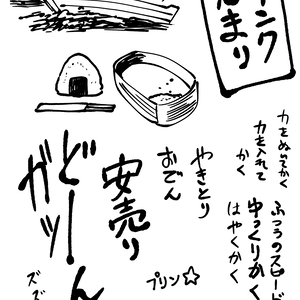 ンク
まり
力をぬいてかく
力を入れて
かく
ふつうのスピード
ゆっくりかく
はやくかく
やきとり
おでん
安売り
どーん
ガッ
ズズ
プリン☆